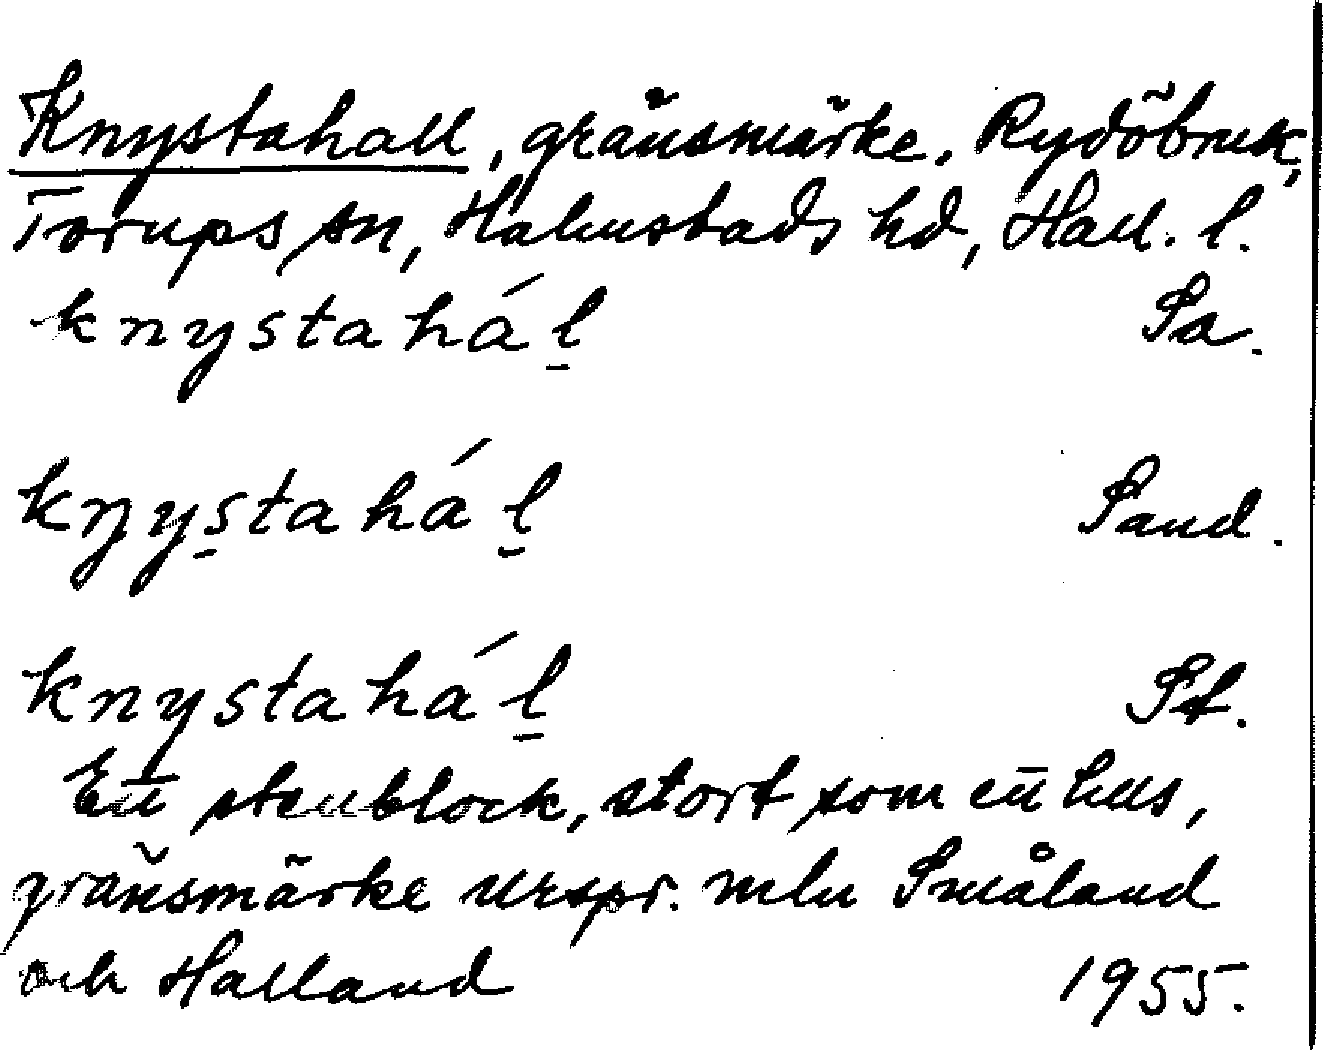 Knystahall, gränsmärke, Rydöbruk,
Torups sn, Halmstads hd, Hall. l.
knystahál̲ Sa.
kn̡ys̲tahál̲ Sand.
knystahál̲ St.
Ett stenblock, stort som ett hus,
gränsmärke urspr. mln Småland
och Halland 1955.